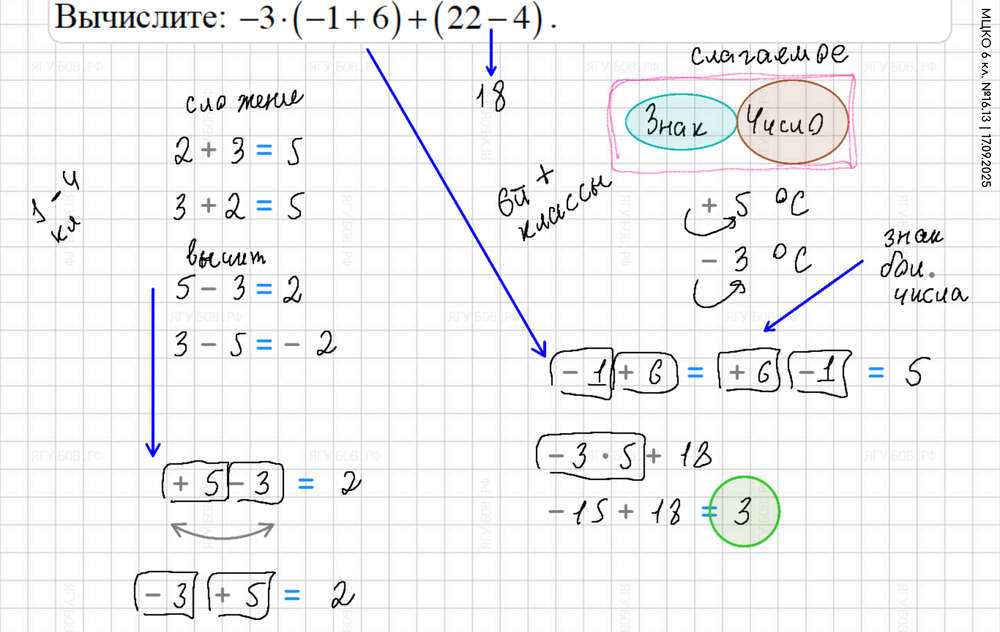 Вычислите: −3·(−1+6)+(22−4).
18
слагаемое
Знак Число
сложение
2 + 3 = 5
3 + 2 = 5
1-4
кл
вычит
5 − 3 = 2
3 − 5 = − 2
+ 5 − 3 = 2
− 3 + 5 = 2
6й +
классы
+ 5 °C
− 3 °C
знак
бол.
числа
− 1 + 6 = + 6 − 1 = 5
− 3 · 5 + 18
− 15 + 18 = 3
МЦКО 6 кл. №16.13 | 17.09.2025
ЯГУБОВ.РФ